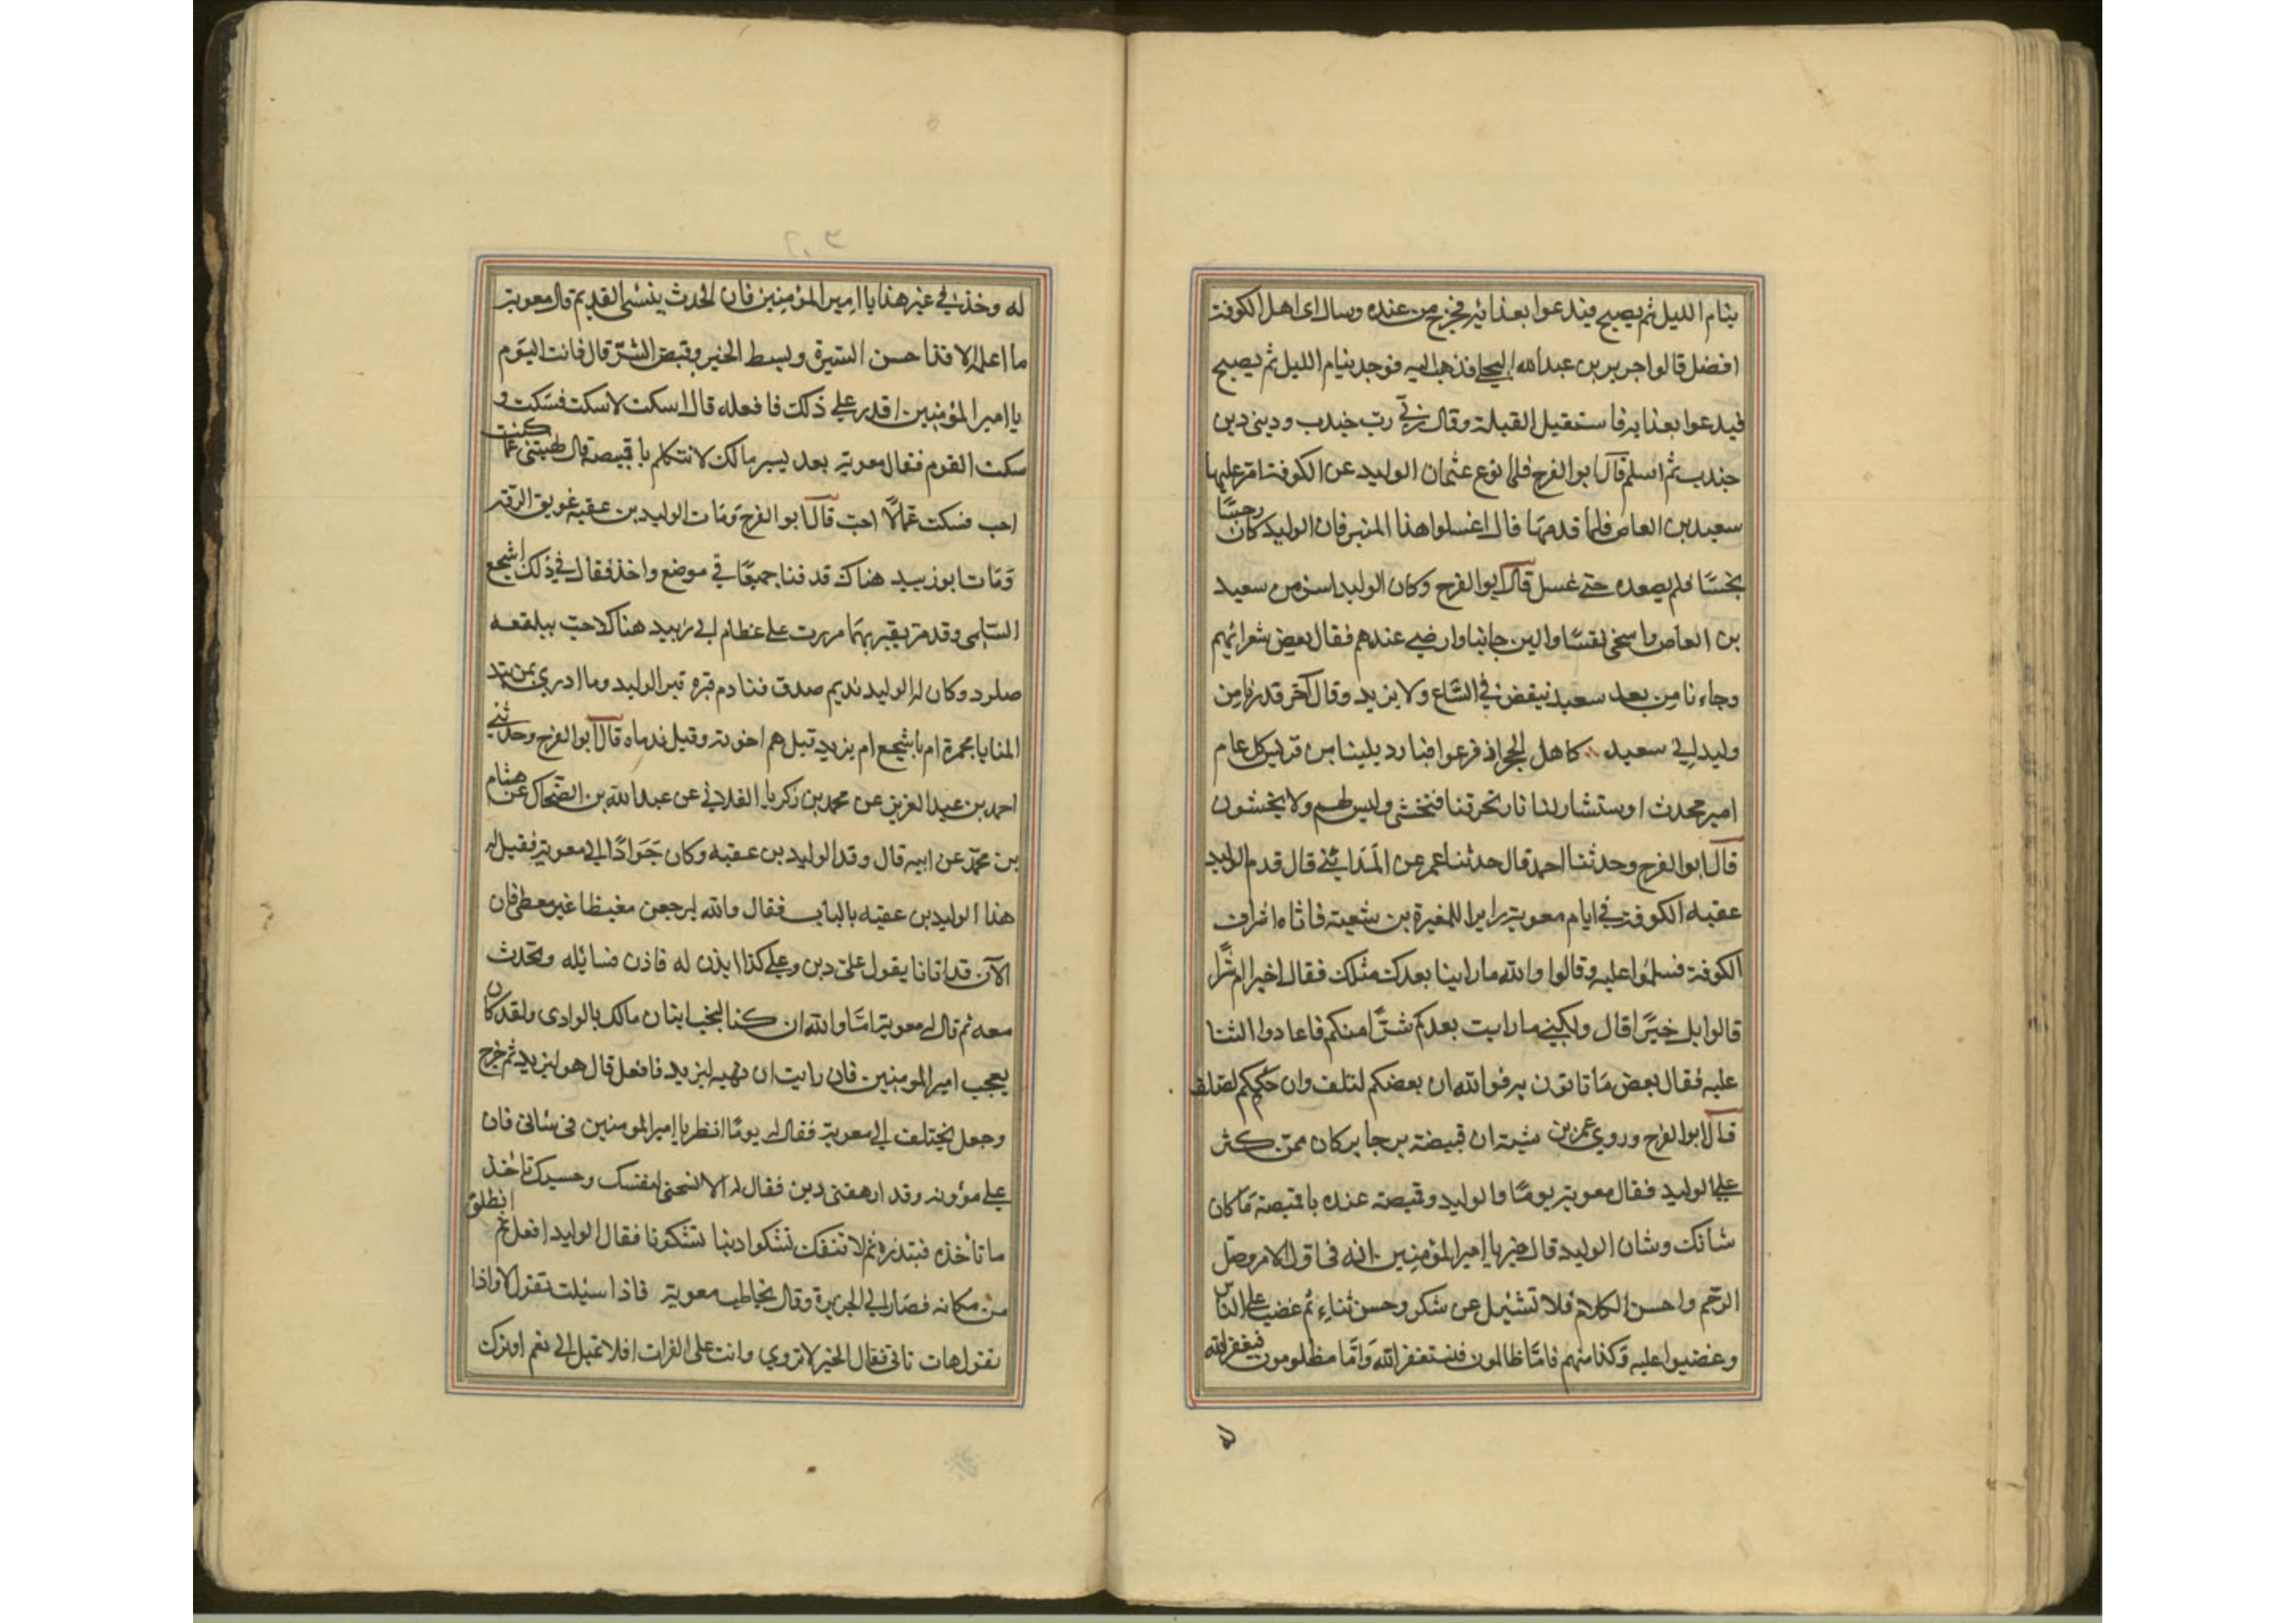 ينام الليل ثم يصبح فيدعوا بغدائه فخرج من عنده وسال اى اهل الكوفة
افضل قالوا جرير بن عبدالله البجلي فذهب اليه فوجد ينام الليل ثم يصبح
فيدعوا بغدايه فاستقبل القبلة وقال ربّي ربّ جندب وديني دين
جندب ثم اسلم قال ابو الفرج فلما نوع عثمان الوليد عن الكوفة امّر عليها
سعيد بن العاص فلما قدمها قال اغسلوا هذا المنبر فان الوليد كان رجسًا
نجسًا فلم يصعده حتى غسل قال ابو الفرج وكان الوليد اسن من سعيد
بن العاص واسخى نفسًا والين جانبا وارضى عندهم فقال بعض شعرائهم
وجاءنا من بعد سعيد ينقص في الصّاع ولا يزيد وقال آخر قد رنا من
وليد الى سعيد كاهل الحجر اذ فزعوا فبار ديلينا من قريش كل عام
امير محدث او مستشار لنا نار تحرقنا فنخشى وليس لهم ولا يخشون
قال ابو الفرج وحدثنا احمد قال حدثنا عمر عن المَدَائني قال قدم الوليد
عقبه الكوفة في ايام معوية زايرا للمغيرة بن شعبة فاتاه اشراف
الكوفة فسلموا عليه وقالوا والله ما راينا بعدك مثلك فقال اخيرا ام شرّا
قالوا بل خيرًا قال ولكني ما رايت بعدكم شرًّا منكم فاعادوا الثنا
عليه فقال بعض مَا تاتون به فوالله ان بعضكم لتلف وان حبّكم لصلف
قال ابو الفرج وروي عمر بن شبة ان قبيصة بن جابر كان ممن كثر
على الوليد فقال معوية يومًا والوليد وقبيصة عنده يا قبيصة مَا كان
شانك وشان الوليد قال خير يا امير المؤمنين انه في اول الامر وصل
الرّحم واحسن الكلام فلا تسْئيل عن شكر وحسن ثناءٍ ثم غضب على الناسّ
وغضبوا عليه وَكنا منهم فامّا ظالمون فنستغفر الله وَامّا مظلومون فيغفر الله
له
له وخذ في غير هذا يا امير المؤمنين فان الحدث ينسي القديم قال معوية
ما اعلمه الا قد احسن السّيرة وبسط الخير وقبض الشّرّ قال فانت اليَوم
يا امير المؤمنين اقدر على ذلك فافعله قال اسكت لاسكت فسَكت و
سكت القوم فقال معوية بعد يسير مالك لا تتكلم يا قبيصة قال نهيتني عمّا كنت
احب فسكت عمّا لا احبّ قال ابو الفرج وَمات الوليد بن عقبة فويق الرّقة
وَمات ابو زبيد هناك فدفنا جميعًا في موضع واحد فقال في ذلك اشجع
السّلمى وقد مرّ بقبريهما مررت على عظام ابي زبيد هناك لاحت ببلقعه
صلود وكان له الوليد نديم صدق فنادم قبره قبر الوليد وما ادري بمن تبد
المنايا بحمزة ام باشجع ام يزيد قيل هم اخوته وقيل ندماه قال ابو الفرج وحدّثني
احمد بن عبد العزيز عن محمد بن زكريا الغلابي عن عبد الله بن الضّحاك عن هشام
بن محمّد عن ابيه قال وفد الوليد بن عقبه وكان جَوَادًا الى معوية فقيل له
هذا الوليد بن عقبه بالباب فقال والله ليرجعن مغيظا غير معطى فان
الآن قد اتانا يقول علىّ دين وعليّ كذا ايذن له فاذن فسائله وتحدث
معه ثم قال له معوية امّا والله ان كنا لنحب اتيان مالك بالوادى ولقد كان
يعجب امير المومنين فان رايت ان تهبه ليزيد فافعل قال هو ليزيد ثم خرج
وجعل يختلف الى معوية فقال له يومًا انظر يا امير المومنين في شاني فان
علي مؤونه وقد ارهقني دين فقال له الا تستحي لنفسك وحسبك تاخذ
ما تاخذه فتبذره ثم لا تنفك تشكوا دينا تشكونا فقال الوليد افعل ثم انطلق
من مكانه فصار الى الجزيرة وقال يخاطب معوية فاذا سئيلت تقول لا واذا
تقول هات تاتى فقال الخير لا تروي وانت على الفرات افلا تميل الى نعم او ترك